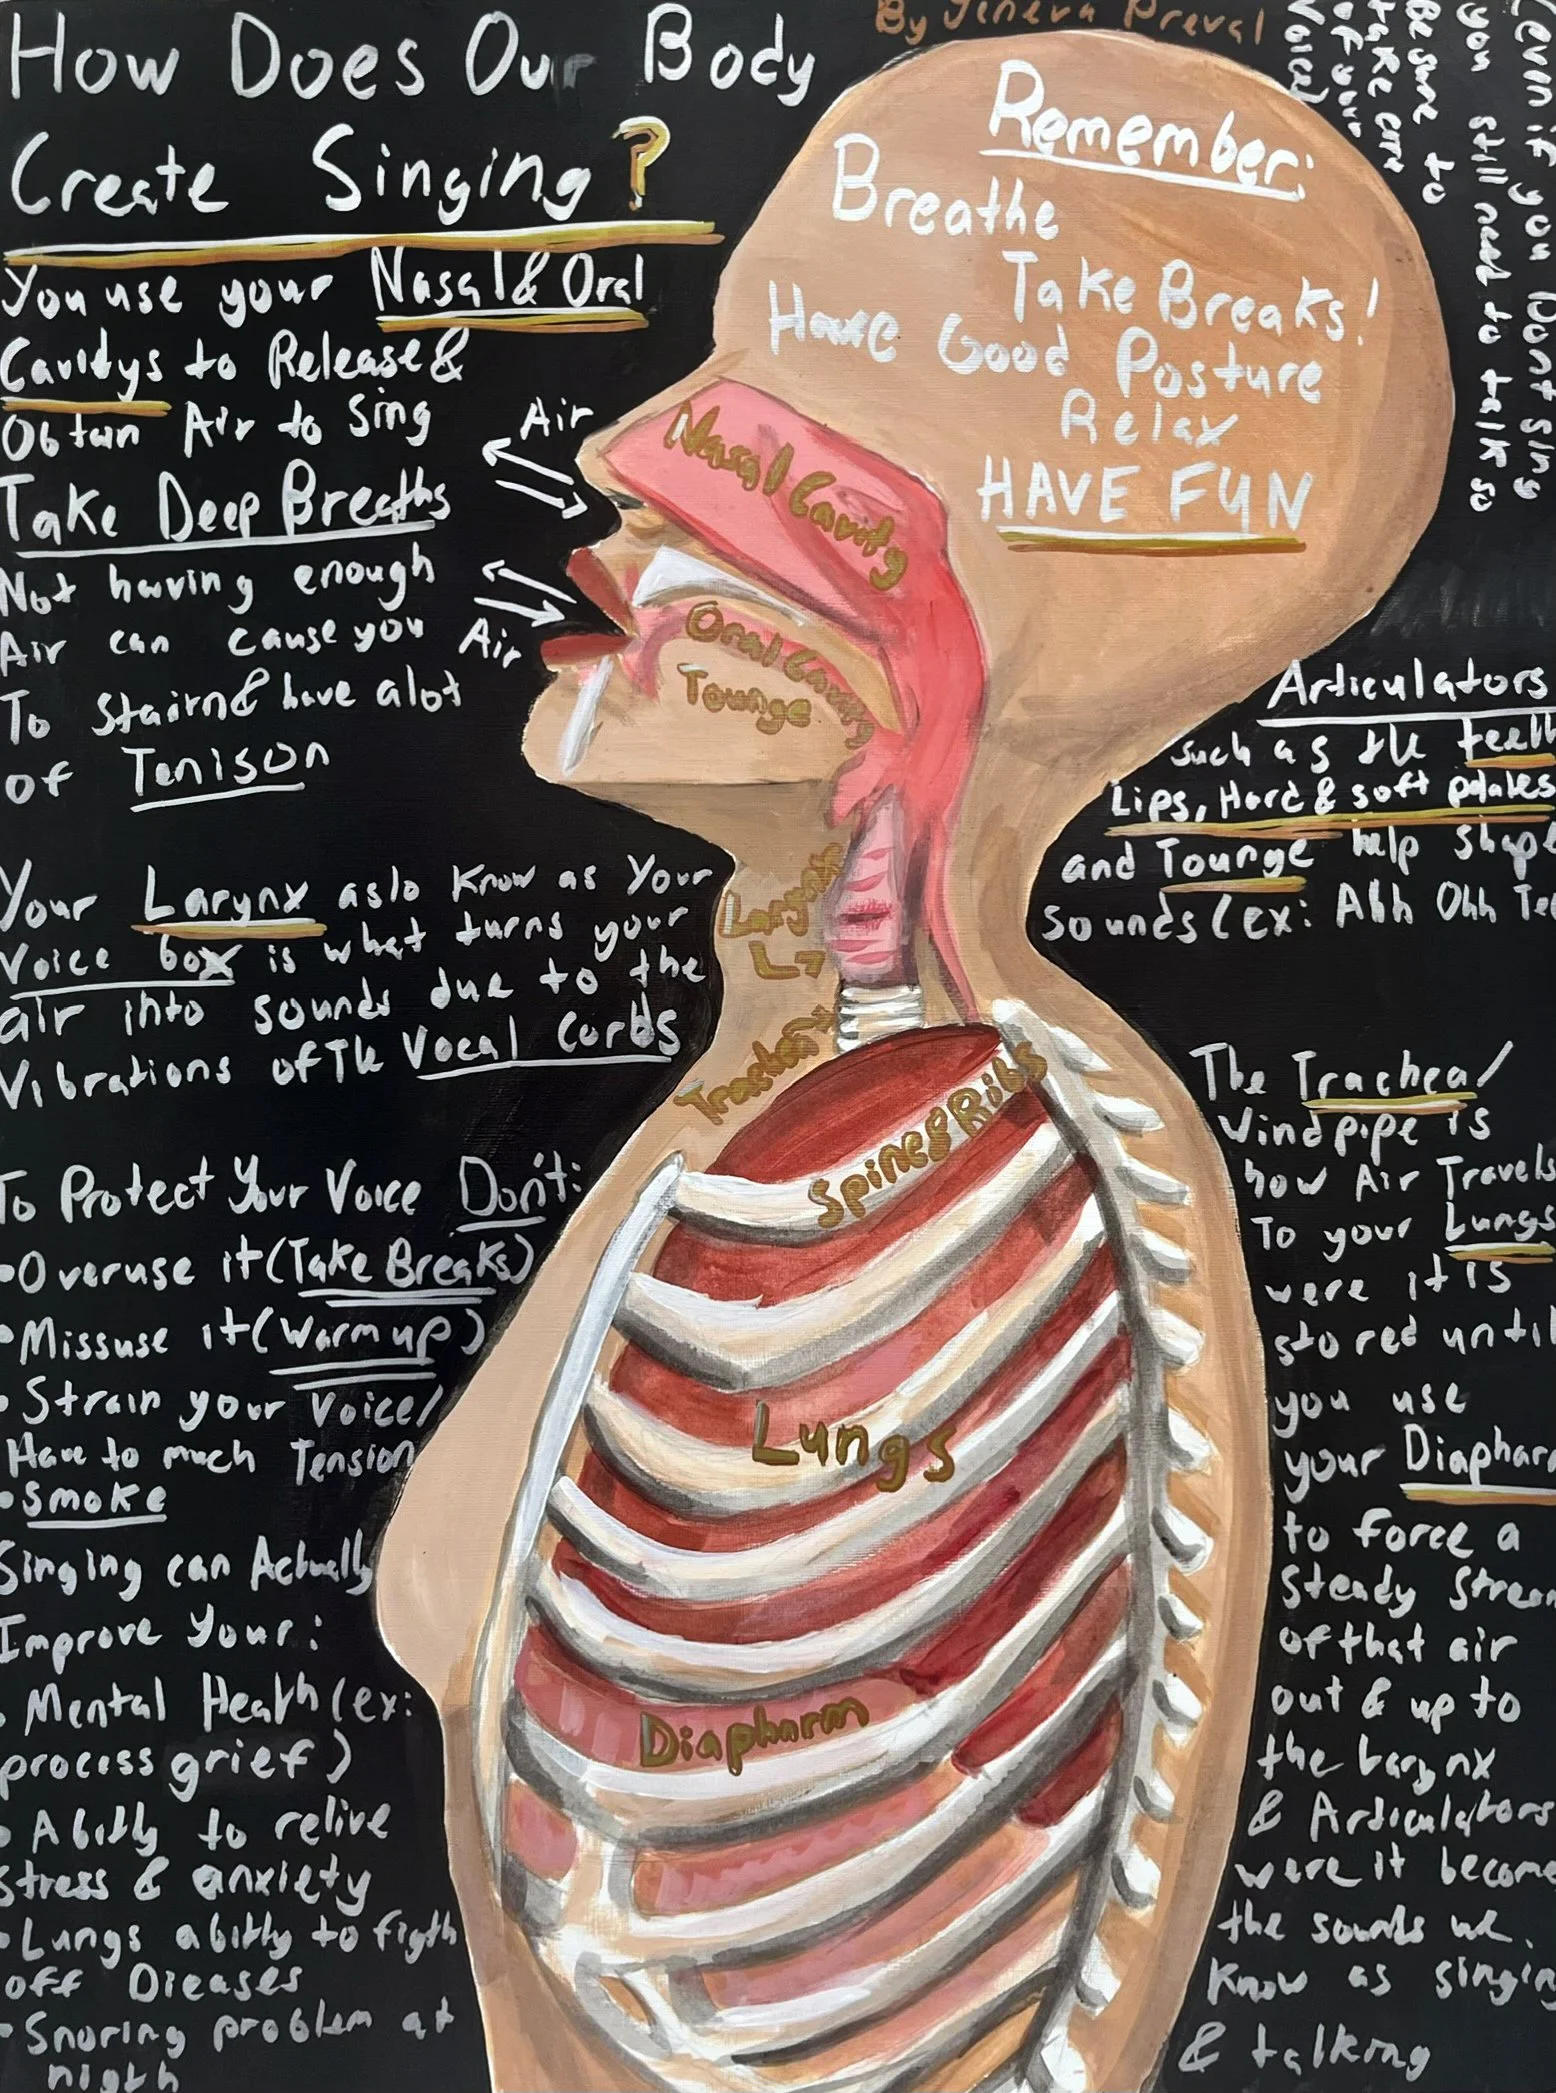 How Does Our Body
Create Singing?
By Jeneva Preval
You use your Nasal & Oral
Cavidys to Release &
Obtain Air to Sing
Take Deep Breaths
Not having enough
Air can cause you
To Stairn & have alot
of Tenison
Your Larynx aslo Know as Your
Voice box is what turns your
air into sounds due to the
Vibrations of The Vocal Cords
To Protect Your Voice Don't:
•Overuse it (Take Breaks)
•Missuse it (Warm up)
•Strain your Voice/
Have to much Tension
•Smoke
Singing can Actually
Improve Your:
•Mental Health (ex:
process grief)
•Ability to relive
Stress & anxiety
•Lungs ability to figth
off Dieases
•Snoring problem at
nigth
Air
Air
Remember:
Breathe
Take Breaks!
Have Good Posture
Relax
HAVE FUN
Nasal Cavity
Oral Cavity
Tounge
Larynx
Spine & Ribs
Lungs
Diapharm
Evin if you Dont Sing
you still need to talk so
Be sure to
take care
of your
Voice!
Articulators
such as the teeth
Lips, Hard & soft palates
and Tounge help shape
sounds (ex: Ahh Ohh Tee
The Trachea/
Vindpipe is
how Air Travels
To your Lungs
were it is
stored until
you use
your Diapharm
to force a
Steady Stream
of that air
out & up to
the Larynx
& Articulators
were it become
the sounds we
Know as singing
& talking